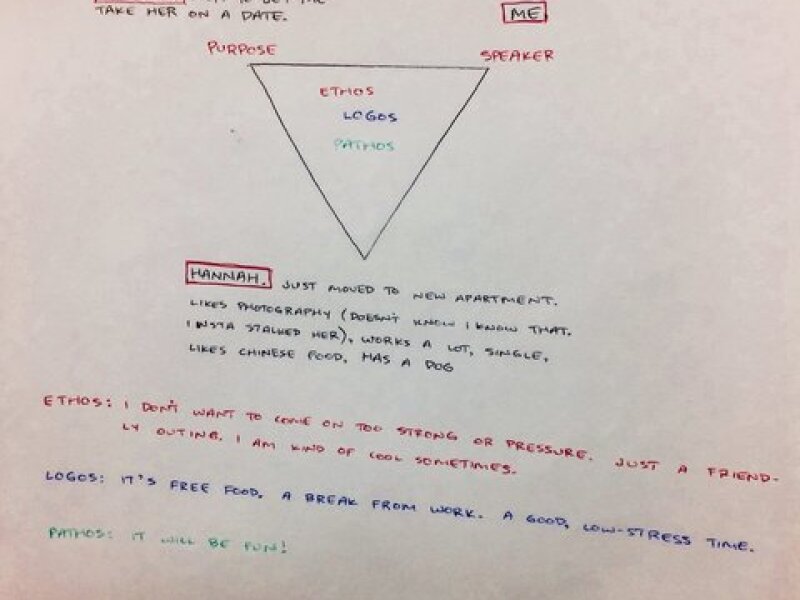 TAKE HER ON A DATE.
ME
PURPOSE
SPEAKER
ETHOS
LOGOS
PATHOS
HANNAH. JUST MOVED TO NEW APARTMENT.
LIKES PHOTOGRAPHY (DOESN'T KNOW I KNOW THAT.
I INSTA STALKED HER), WORKS A LOT, SINGLE,
LIKES CHINESE FOOD, HAS A DOG
ETHOS: I DON'T WANT TO COME ON TOO STRONG OR PRESSURE. JUST A FRIEND-
LY OUTING. I AM KIND OF COOL SOMETIMES.
LOGOS: IT'S FREE FOOD, A BREAK FROM WORK. A GOOD, LOW-STRESS TIME.
PATHOS: IT WILL BE FUN!